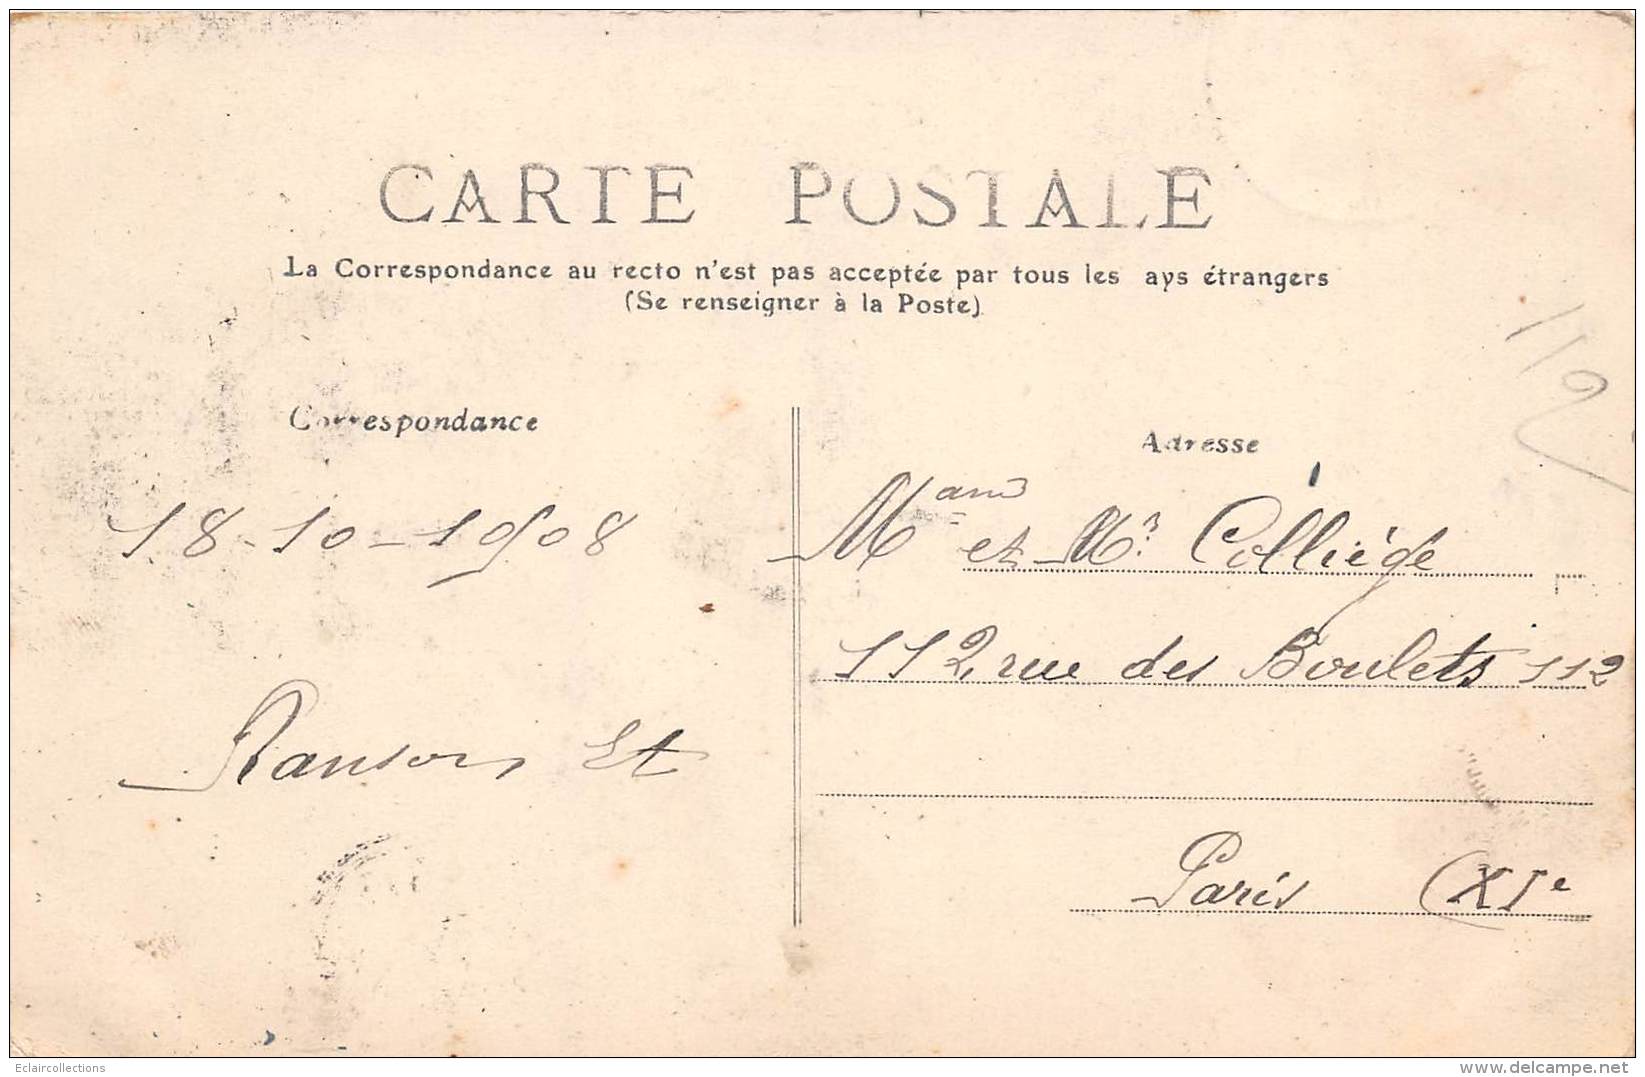 CARTE POSTALE
La Correspondance au recto n'est pas acceptée par tous les ays étrangers
(Se renseigner à la Poste)
Correspondance
18-10-1908
Adresse
et Mr. Colliège
112, rue des Boulets 112
Paris (XIe
112
Eclaircollections
delcampe.net